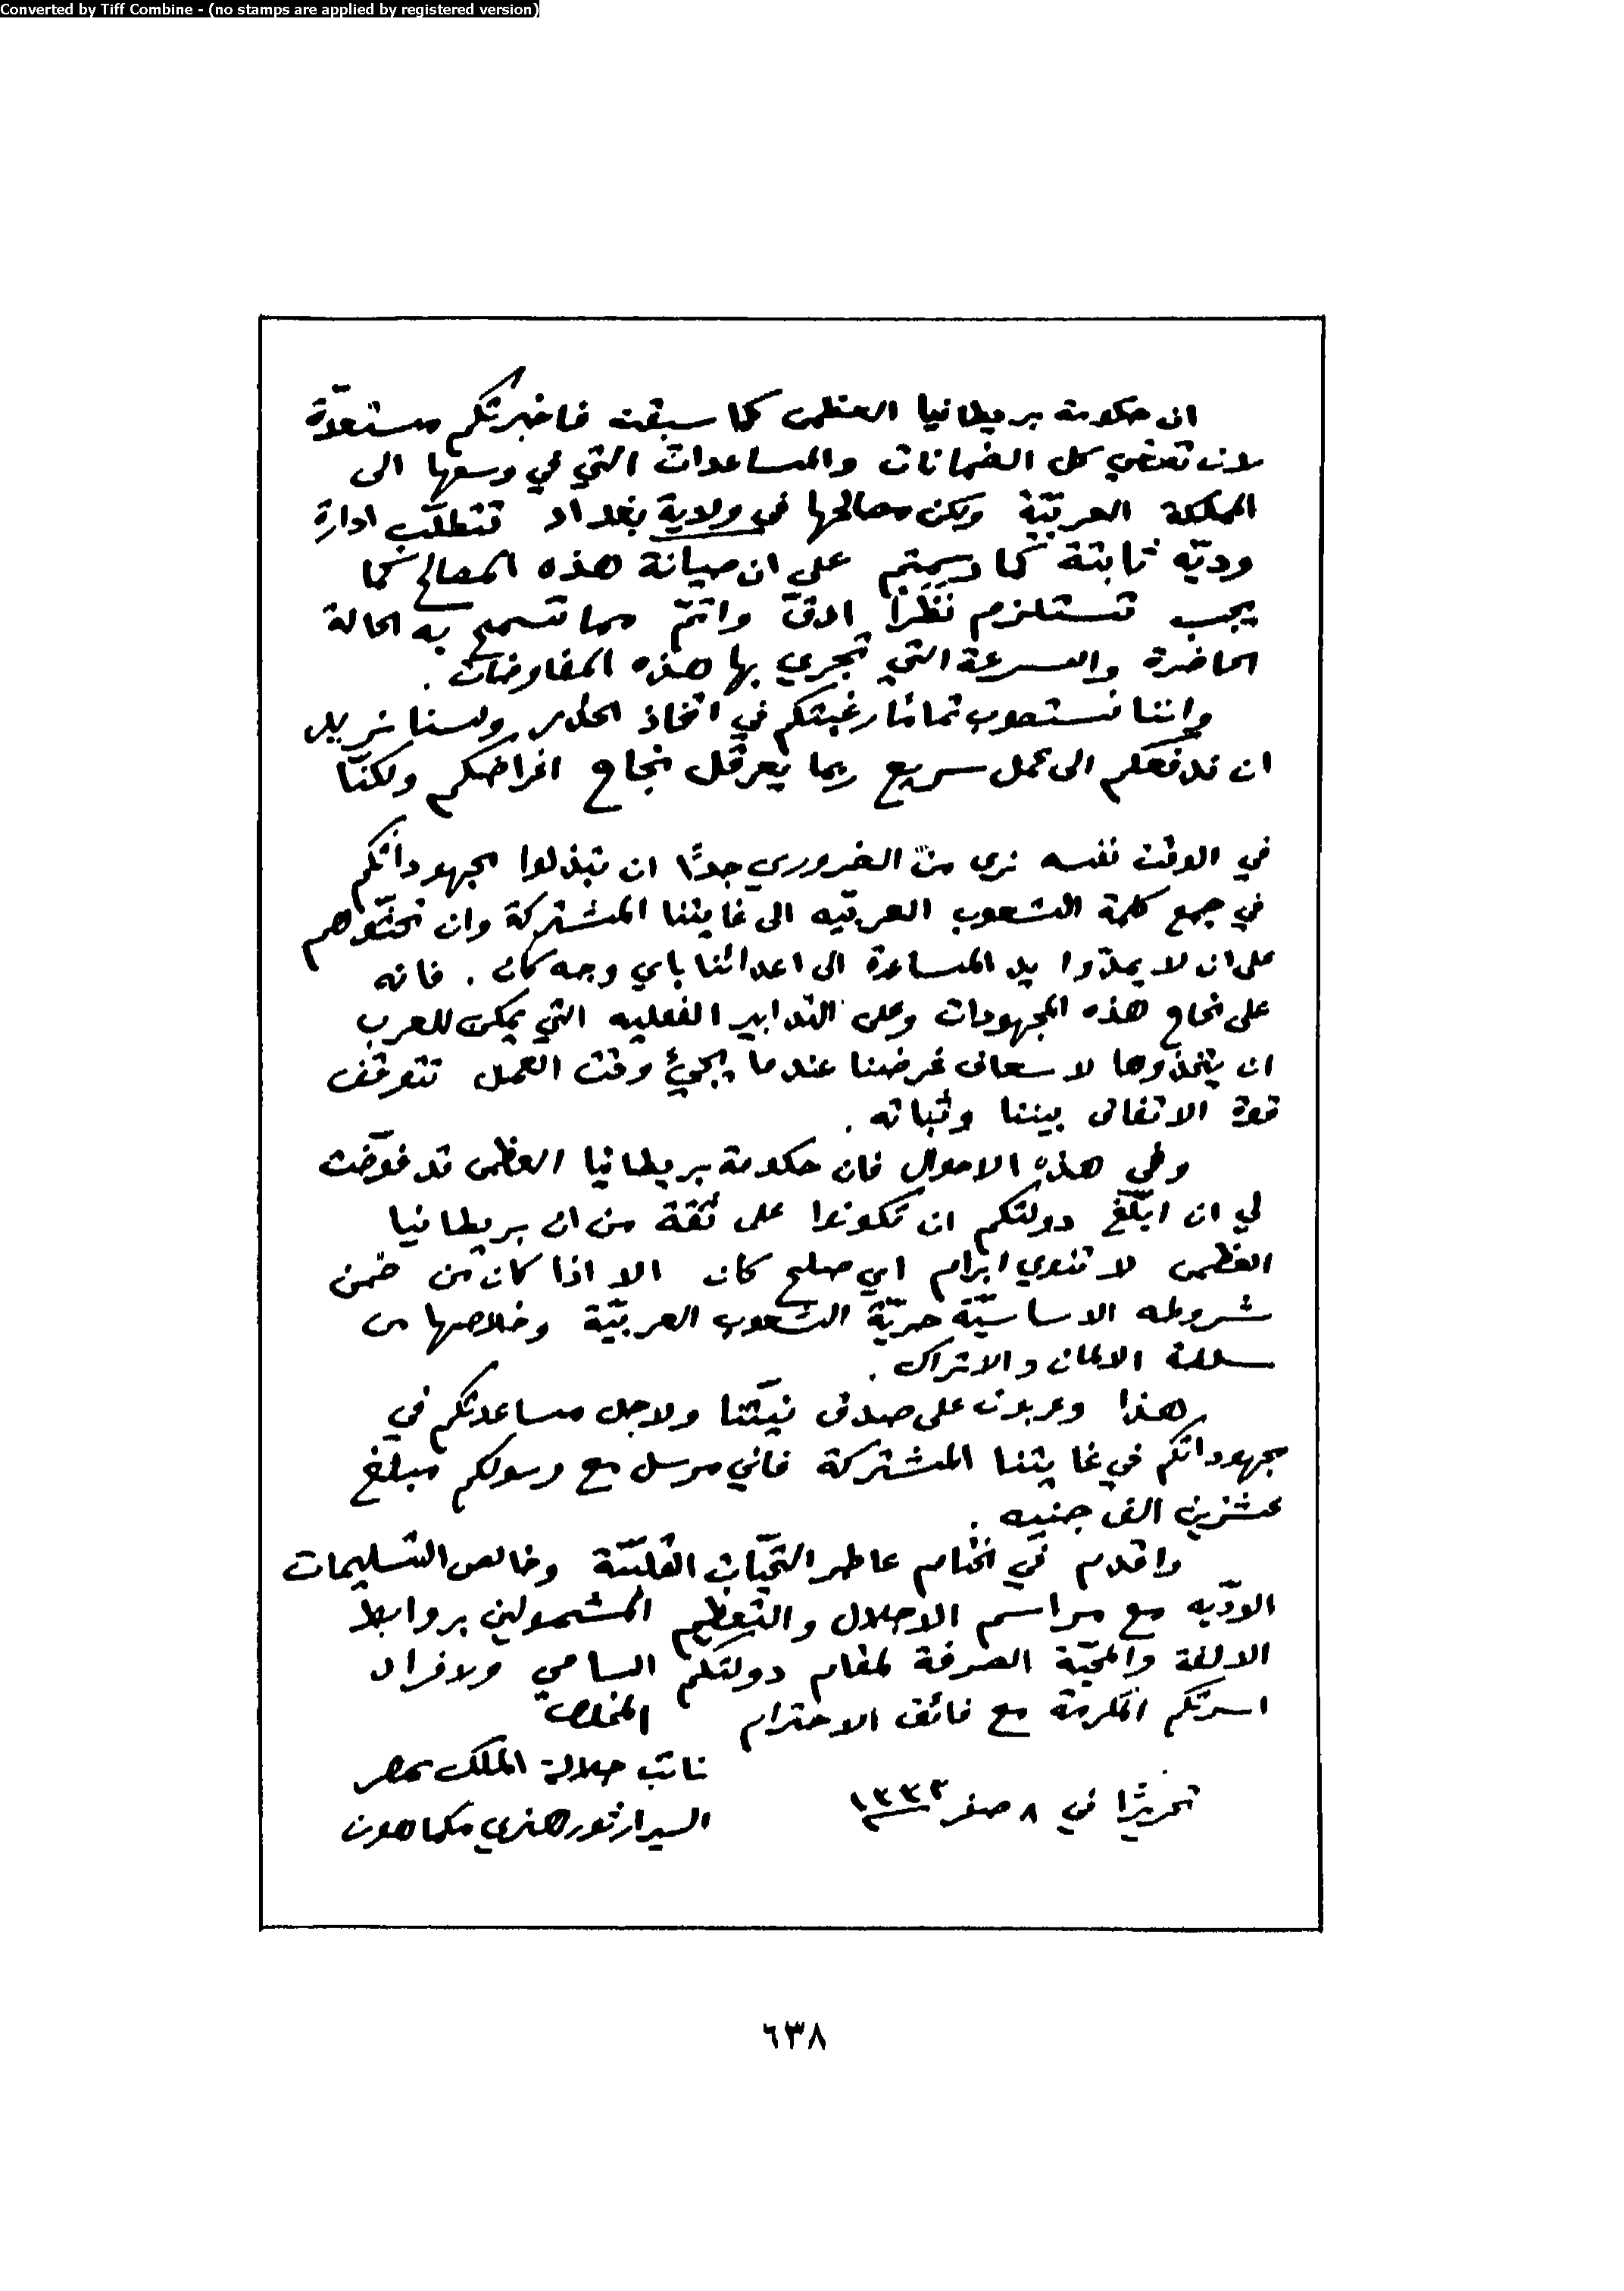 Converted by Tiff Combine - (no stamps are applied by registered version)
ان حكومة بريطانيا العظمى كما سبقت فاخبرتكم مستعدّة
لان تعطي كل الضمانات والمساعدات التي في وسعها الى
المملكة العربيّة ولكن مصالحها في ولاية بغداد تتطلّب ادارة
وديّه ثابتة كما رسمتم على ان صيانة هذه المصالح كما
يجب تستلزم نظرًا ادقّ واتمّ مما تسمح به الحالة
الحاضرة والسرعة التي تجري بها هذه المفاوضات .
واننا نستصوب تمامًا رغبتكم في اتخاذ الحذر ولسنا نريد
ان ندفعكم الى عمل سريع ربما يعرقل نجاح اغراضكم ولكنّا
في الوقت نفسه نرى من الضروري جدًّا ان تبذلوا مجهوداتكم
في جمع كلمة الشعوب العربيّه الى غايتنا المشتركة وان تحثّوهم
على ان لا يمدّوا يد المساعدة الى اعدائنا باي وجه كان . فانه
على نجاح هذه المجهودات وعلى التدابير الفعليه التي يمكن للعرب
ان يتخذوها لاسعاف غرضنا عندما يجيء وقت العمل تتوقّف
قوة الاتفاق بيننا وثباته .
وفي هذه الاحوال فان حكومة بريطانيا العظمى قد فوّضت
لي ان ابلّغ دولتكم ان تكونوا على ثقة من ان بريطانيا
العظمى لا تنوي ابرام اي صلح كان الا اذا كان من ضمن
شروطه الاساسيّة حريّة الشعوب العربيّة وخلاصها من
سلطة الالمان والاتراك .
هذا وعربون على صدق نيّتنا ولاجل مساعدتكم في
مجهوداتكم في غايتنا المشتركة فاني مرسل مع رسولكم مبلغ
عشرين الف جنيه .
واقدم في الختام عاطر التحيّات القلبيّة وخالص التسليمات
الودّيه مع مراسم الاجلال والتعظيم المشمولين بروابط
الالفة والمحبّة الصرفة لمقام دولتكم السامي ولافراد
اسرتكم المكرمة مع فائق الاحترام المخلص
نائب جلالة الملك بمصر
تحريرًا في ٨ صفر ١٣٣٤
السير ارثور هنري مكماهون
٦٣٨